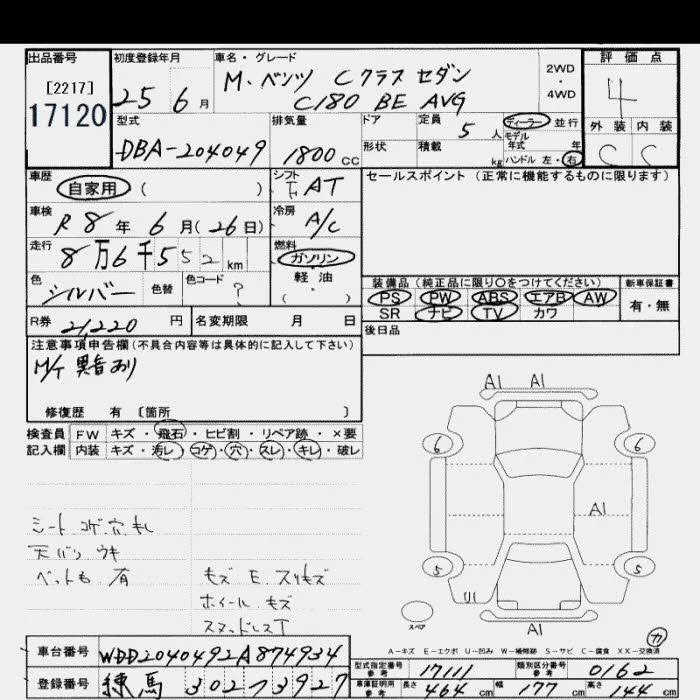 出品番号
[2217]
17120
初度登録年月
25 6 月
車名・グレード
M・ベンツ Cクラス セダン
C180 BE AVG
2WD
・
4WD
評価点
4
外装 内装
C C
型式
DBA-204049
排気量
1800 cc
ドア
形状
定員
5 人
積載
kg
ディーラー 並行
モデル
年式 年
ハンドル 左・右
車歴
自家用 ( )
シフト
F AT
セールスポイント (正常に機能するものに限ります)
車検
R8 年 6 月 (26日)
冷房
A/C
走行
8万6千552 km
燃料
ガソリン
軽・油
( )
色
シルバー
色替
色コード
?
装備品 (純正品に限り○をつけてください)
PS PW ABS エアB AW
SR ナビ TV カワ
新車保証書
有・無
R券 21,220 円
名変期限 月 日
後日品
注意事項申告欄(不具合内容等は具体的に記入して下さい)
M/T 異音あり
修復歴 有 〔箇所 〕
検査員 FW キズ・飛石・ヒビ割・リペア跡・×要
記入欄 内装 キズ・汚レ・コゲ・穴・スレ・キレ・破レ
A1 A1
6 6
A1
5 5
U1
A1
スペア
シート コゲ.穴.キレ
天バリ ウキ
ペット毛 有
モズ E. スリキズ
ホイール キズ
スタッドレスT
カ
A-キズ E-エクボ U-凹み W-補修跡 S-サビ C-腐食 XX-交換済
車台番号 WDD2040492A874934
登録番号 練馬 302 73927
型式指定番号
参考
17111
類別区分番号
参考
0162
車庫証明用
参考
長さ 464 cm 幅 177 cm 高さ 144 cm